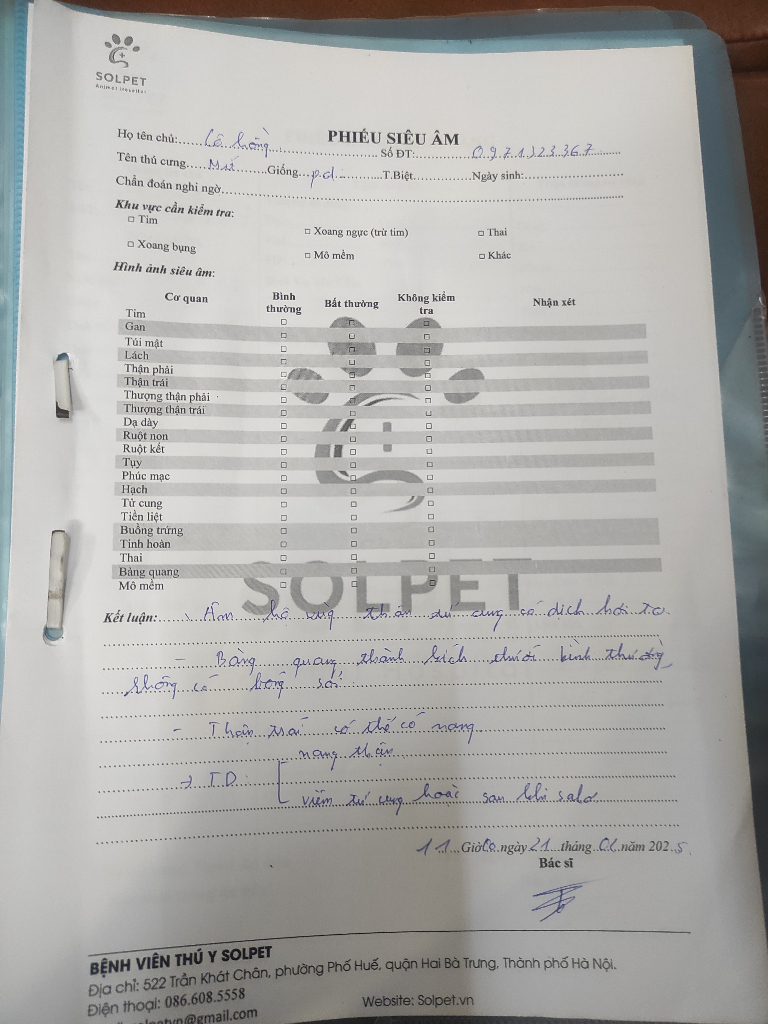 SOLPET
Animal Hospital
PHIẾU SIÊU ÂM
Họ tên chủ: Cô Hồng Số ĐT: 0971323367
Tên thú cưng Giống p.d T.Biệt Ngày sinh:
Chẩn đoán nghi ngờ
Khu vực cần kiểm tra:
□ Tim
□ Xoang ngực (trừ tim) □ Thai
□ Xoang bụng
□ Mô mềm □ Khác
Hình ảnh siêu âm:
Cơ quan Bình thường Bất thường Không kiểm tra Nhận xét
Tim □ □ □
Gan □ □ □
Túi mật □ □ □
Lách □ □ □
Thận phải □ □ □
Thận trái □ □ □
Thượng thận phải □ □ □
Thượng thận trái □ □ □
Dạ dày □ □ □
Ruột non □ □ □
Ruột kết □ □ □
Tụy □ □ □
Phúc mạc □ □ □
Hạch □ □ □
Tử cung □ □ □
Tiền liệt □ □ □
Buồng trứng □ □ □
Tinh hoàn □ □ □
Thai □ □ □
Bàng quang □ □ □
Mô mềm □ □ □
SOLPET
Kết luận: thân tử cung có dịch hơi to
- Bàng quang thành kích thước bình thường
không có sỏi
- Thận trái có thể có nang
nang thận
→ TD
viêm tử cung hoặc sau khi
11 Giờ 00 ngày 21 tháng 01 năm 2025
Bác sĩ
BỆNH VIÊN THÚ Y SOLPET
Địa chỉ: 522 Trần Khát Chân, phường Phố Huế, quận Hai Bà Trưng, Thành phố Hà Nội.
Điện thoại: 086.608.5558
Website: Solpet.vn
@gmail.com